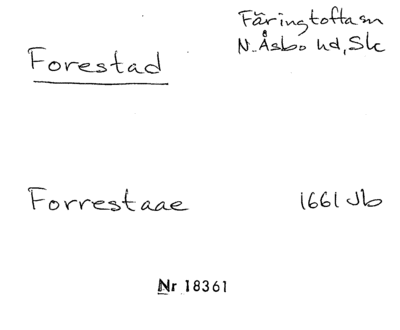 Forestad
Färingtofta sn
N. Åsbo hd, Sk
Forrestaae 1661 Jb
Nr 18361